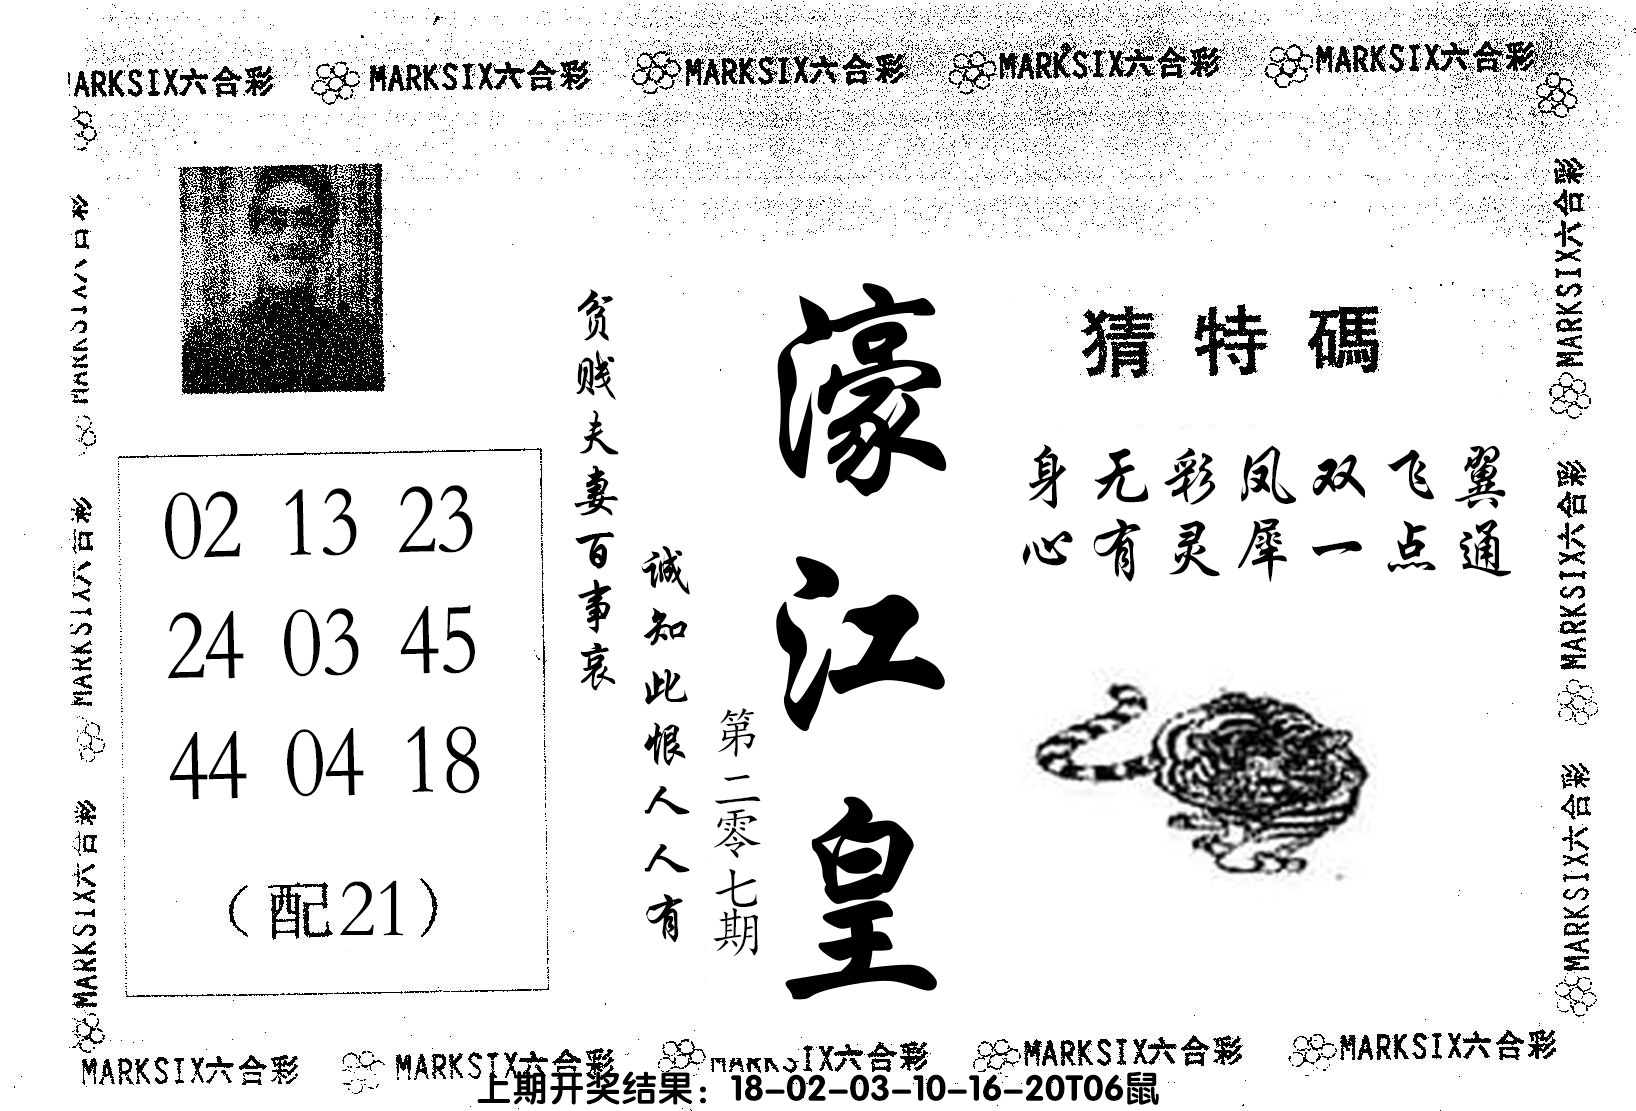 MARKSIX六合彩 MARKSIX六合彩 MARKSIX六合彩 MARKSIX六合彩
猜特碼
身无彩凤双飞翼
心有灵犀一点通
濠江皇
第二零七期
诚知此恨人人有
贫贱夫妻百事哀
02 13 23
24 03 45
44 04 18
（配21）
MARKSIX六合彩
MARKSIX六合彩
MARKSIX六合彩
MARKSIX六合彩
MARKSIX六合彩
MARKSIX六合彩 MARKSIX六合彩 MARKSIX六合彩 MARKSIX六合彩
上期开奖结果：18-02-03-10-16-20T06鼠